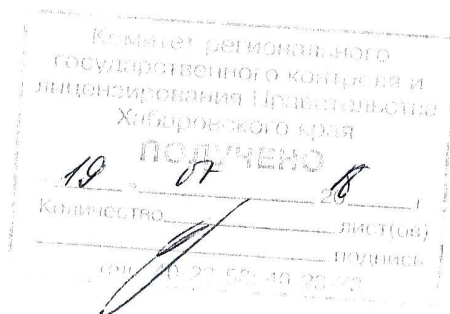 Комитет регионального
государственного контроля и
лицензирования Правительства
Хабаровского края
ПОЛУЧЕНО
19 07 20 18 г
Количество лист(ов)
подпись
тел. 40-23-52; 40-23-